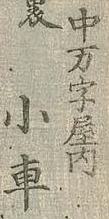 中万字屋内
裳
小車